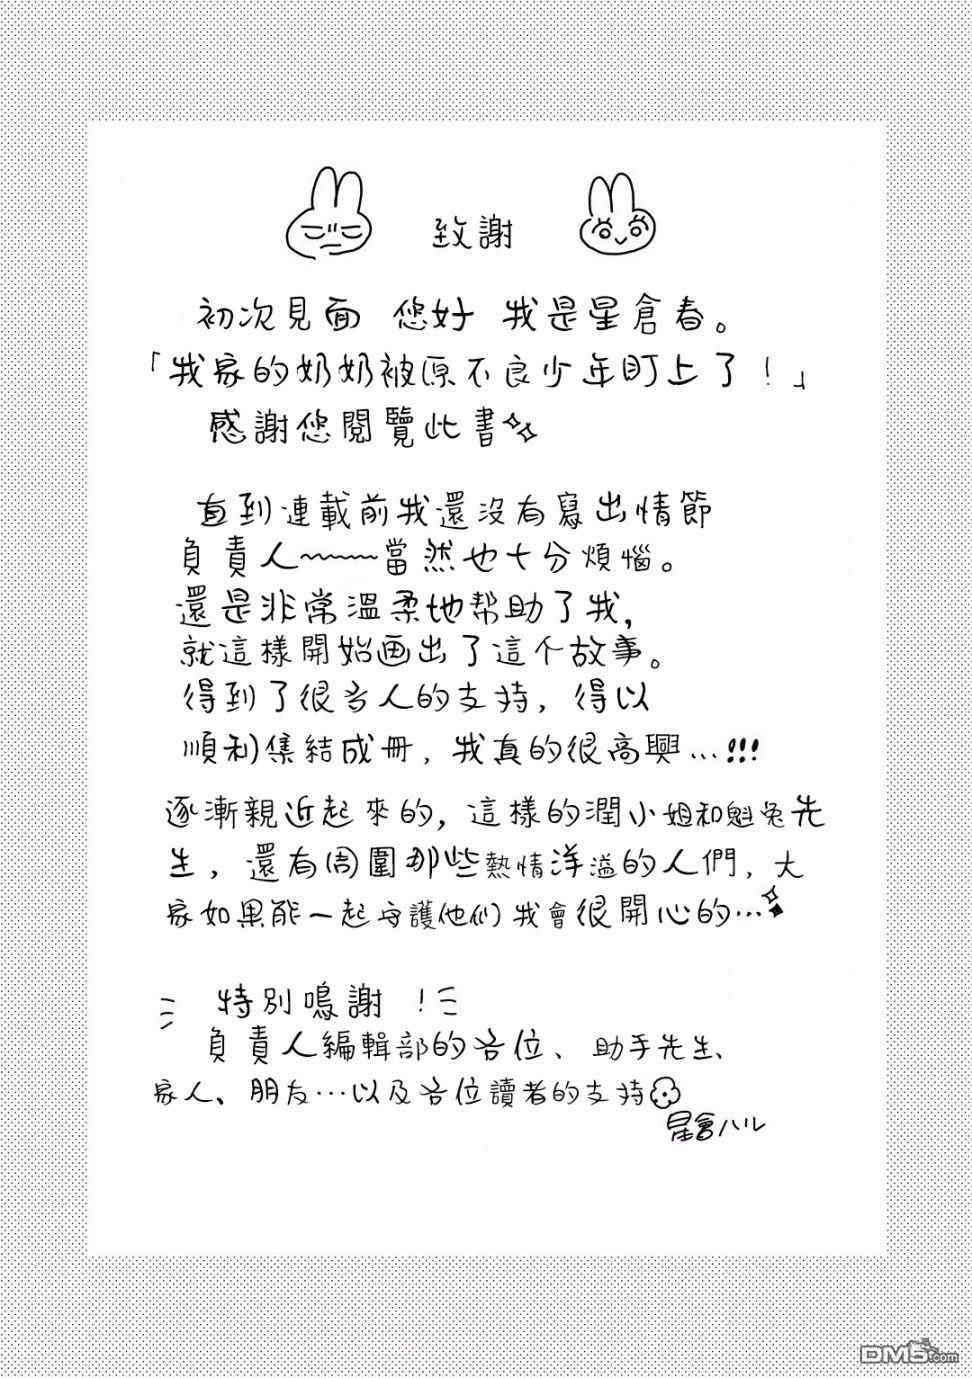 致謝
初次見面 您好 我是星倉春。
「我家的奶奶被原不良少年盯上了！」
感謝您閱覽此書
直到連載前我還沒有寫出情節
負責人~~~~~當然也十分煩惱。
還是非常溫柔地帮助了我,
就這樣開始画出了這个故事。
得到了很多人的支持, 得以
順利集結成冊, 我真的很高興…!!!
逐漸親近起來的, 這樣的潤小姐和魁兔先
生, 還有周圍那些熱情洋溢的人們, 大
家如果能一起守護他们我會很開心的…
特別鳴謝 !
負責人編輯部的各位、助手先生、
家人、朋友…以及各位讀者的支持
星倉ハル
DM5.com